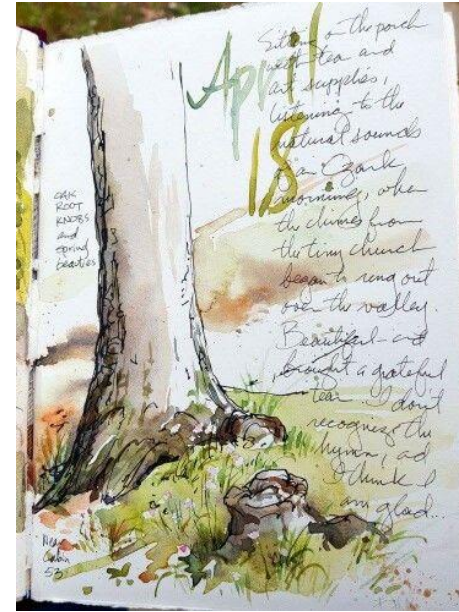 April
18
Sitting on the porch
with tea and
art supplies,
listening to the
natural sounds
of an Ozark
morning, when
the chimes from
the tiny church
began to ring out
over the valley.
Beautiful - and
brought a grateful
tear. I don't
recognize the
hymn, and
I think I
am glad...
OAK
ROOT
KNOBS
and
spring
beauties
Near
Cabin
53